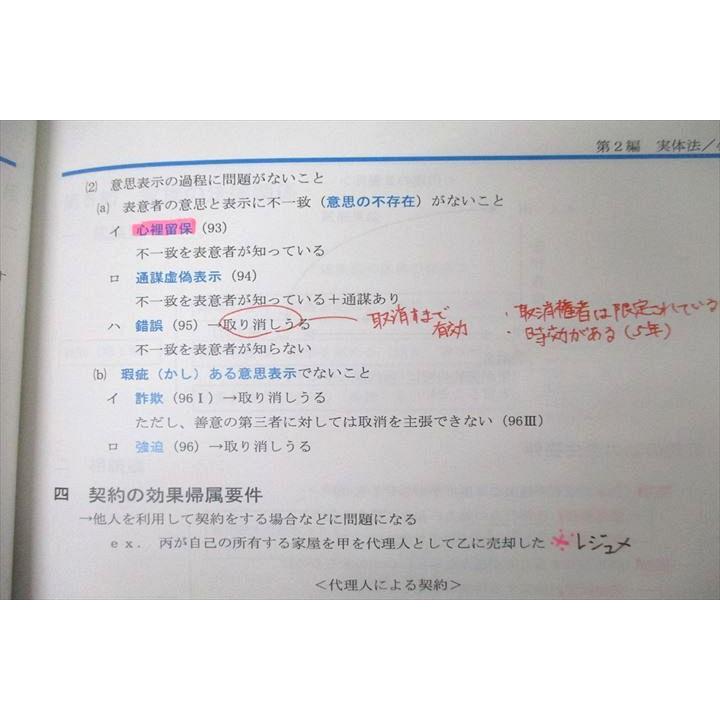 第2編 実体法／
⑵ 意思表示の過程に問題がないこと
(a) 表意者の意思と表示に不一致（意思の不存在）がないこと
イ 心裡留保（93）
不一致を表意者が知っている
ロ 通謀虚偽表示（94）
不一致を表意者が知っている＋通謀あり
ハ 錯誤（95）→取り消しうる
取消すまで
有効
・取消権者は限定されている
・時効がある（5年）
不一致を表意者が知らない
(b) 瑕疵（かし）ある意思表示でないこと
イ 詐欺（96Ⅰ）→取り消しうる
ただし、善意の第三者に対しては取消を主張できない（96Ⅲ）
ロ 強迫（96）→取り消しうる
四 契約の効果帰属要件
→他人を利用して契約をする場合などに問題になる
ｅｘ． 丙が自己の所有する家屋を甲を代理人として乙に売却した ※レジュメ
＜代理人による契約＞